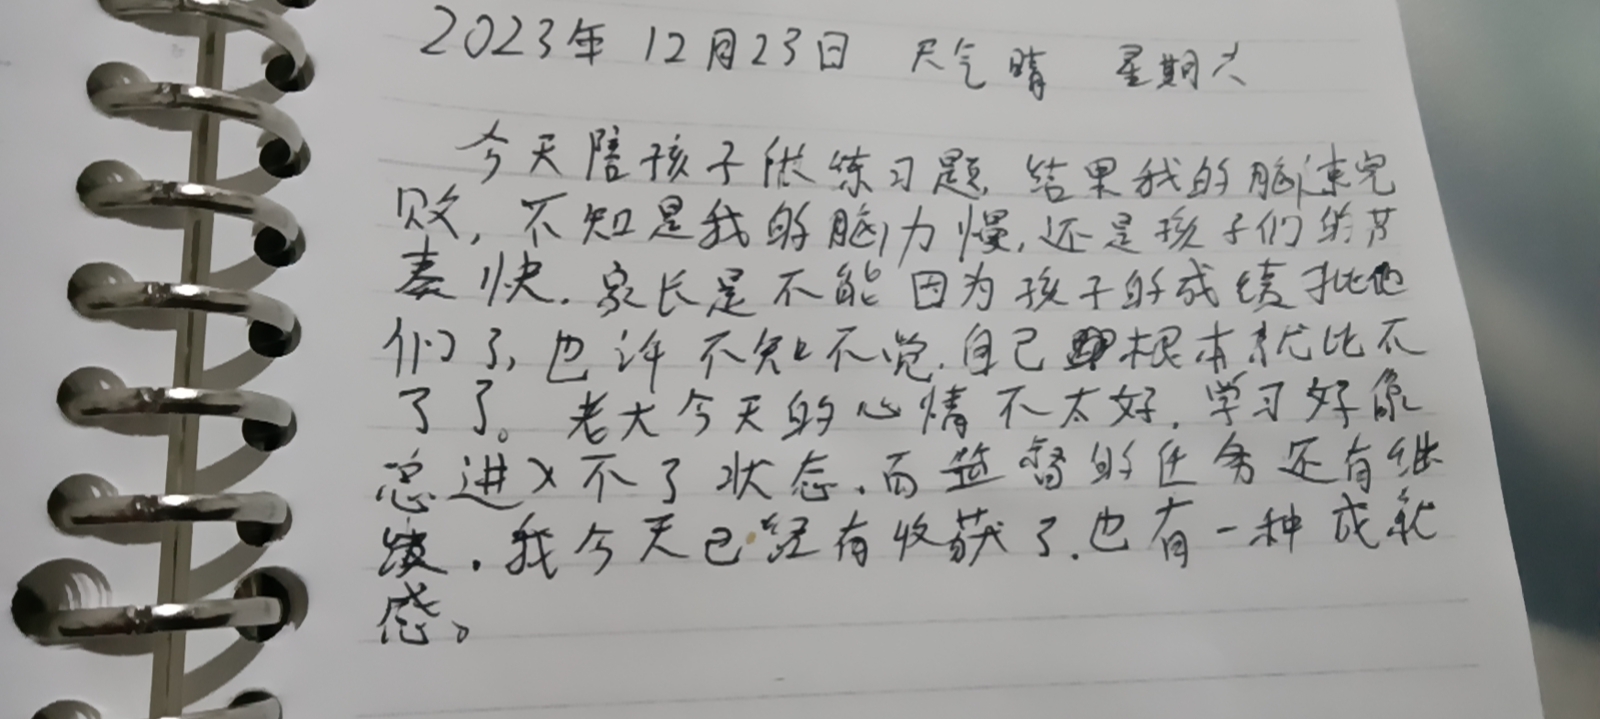 2023年12月23日 天气晴 星期六
今天陪孩子做练习题，结果我的脑速完
败，不知是我的脑力慢，还是孩子们的节
奏快。家长是不能因为孩子的成绩批他
们了，也许不知不觉，自己根本就比不
了了。老大今天的心情不太好，学习好像
总进入不了状态，而监督的任务还有继
续，我今天已经有收获了，也有一种成就
感。